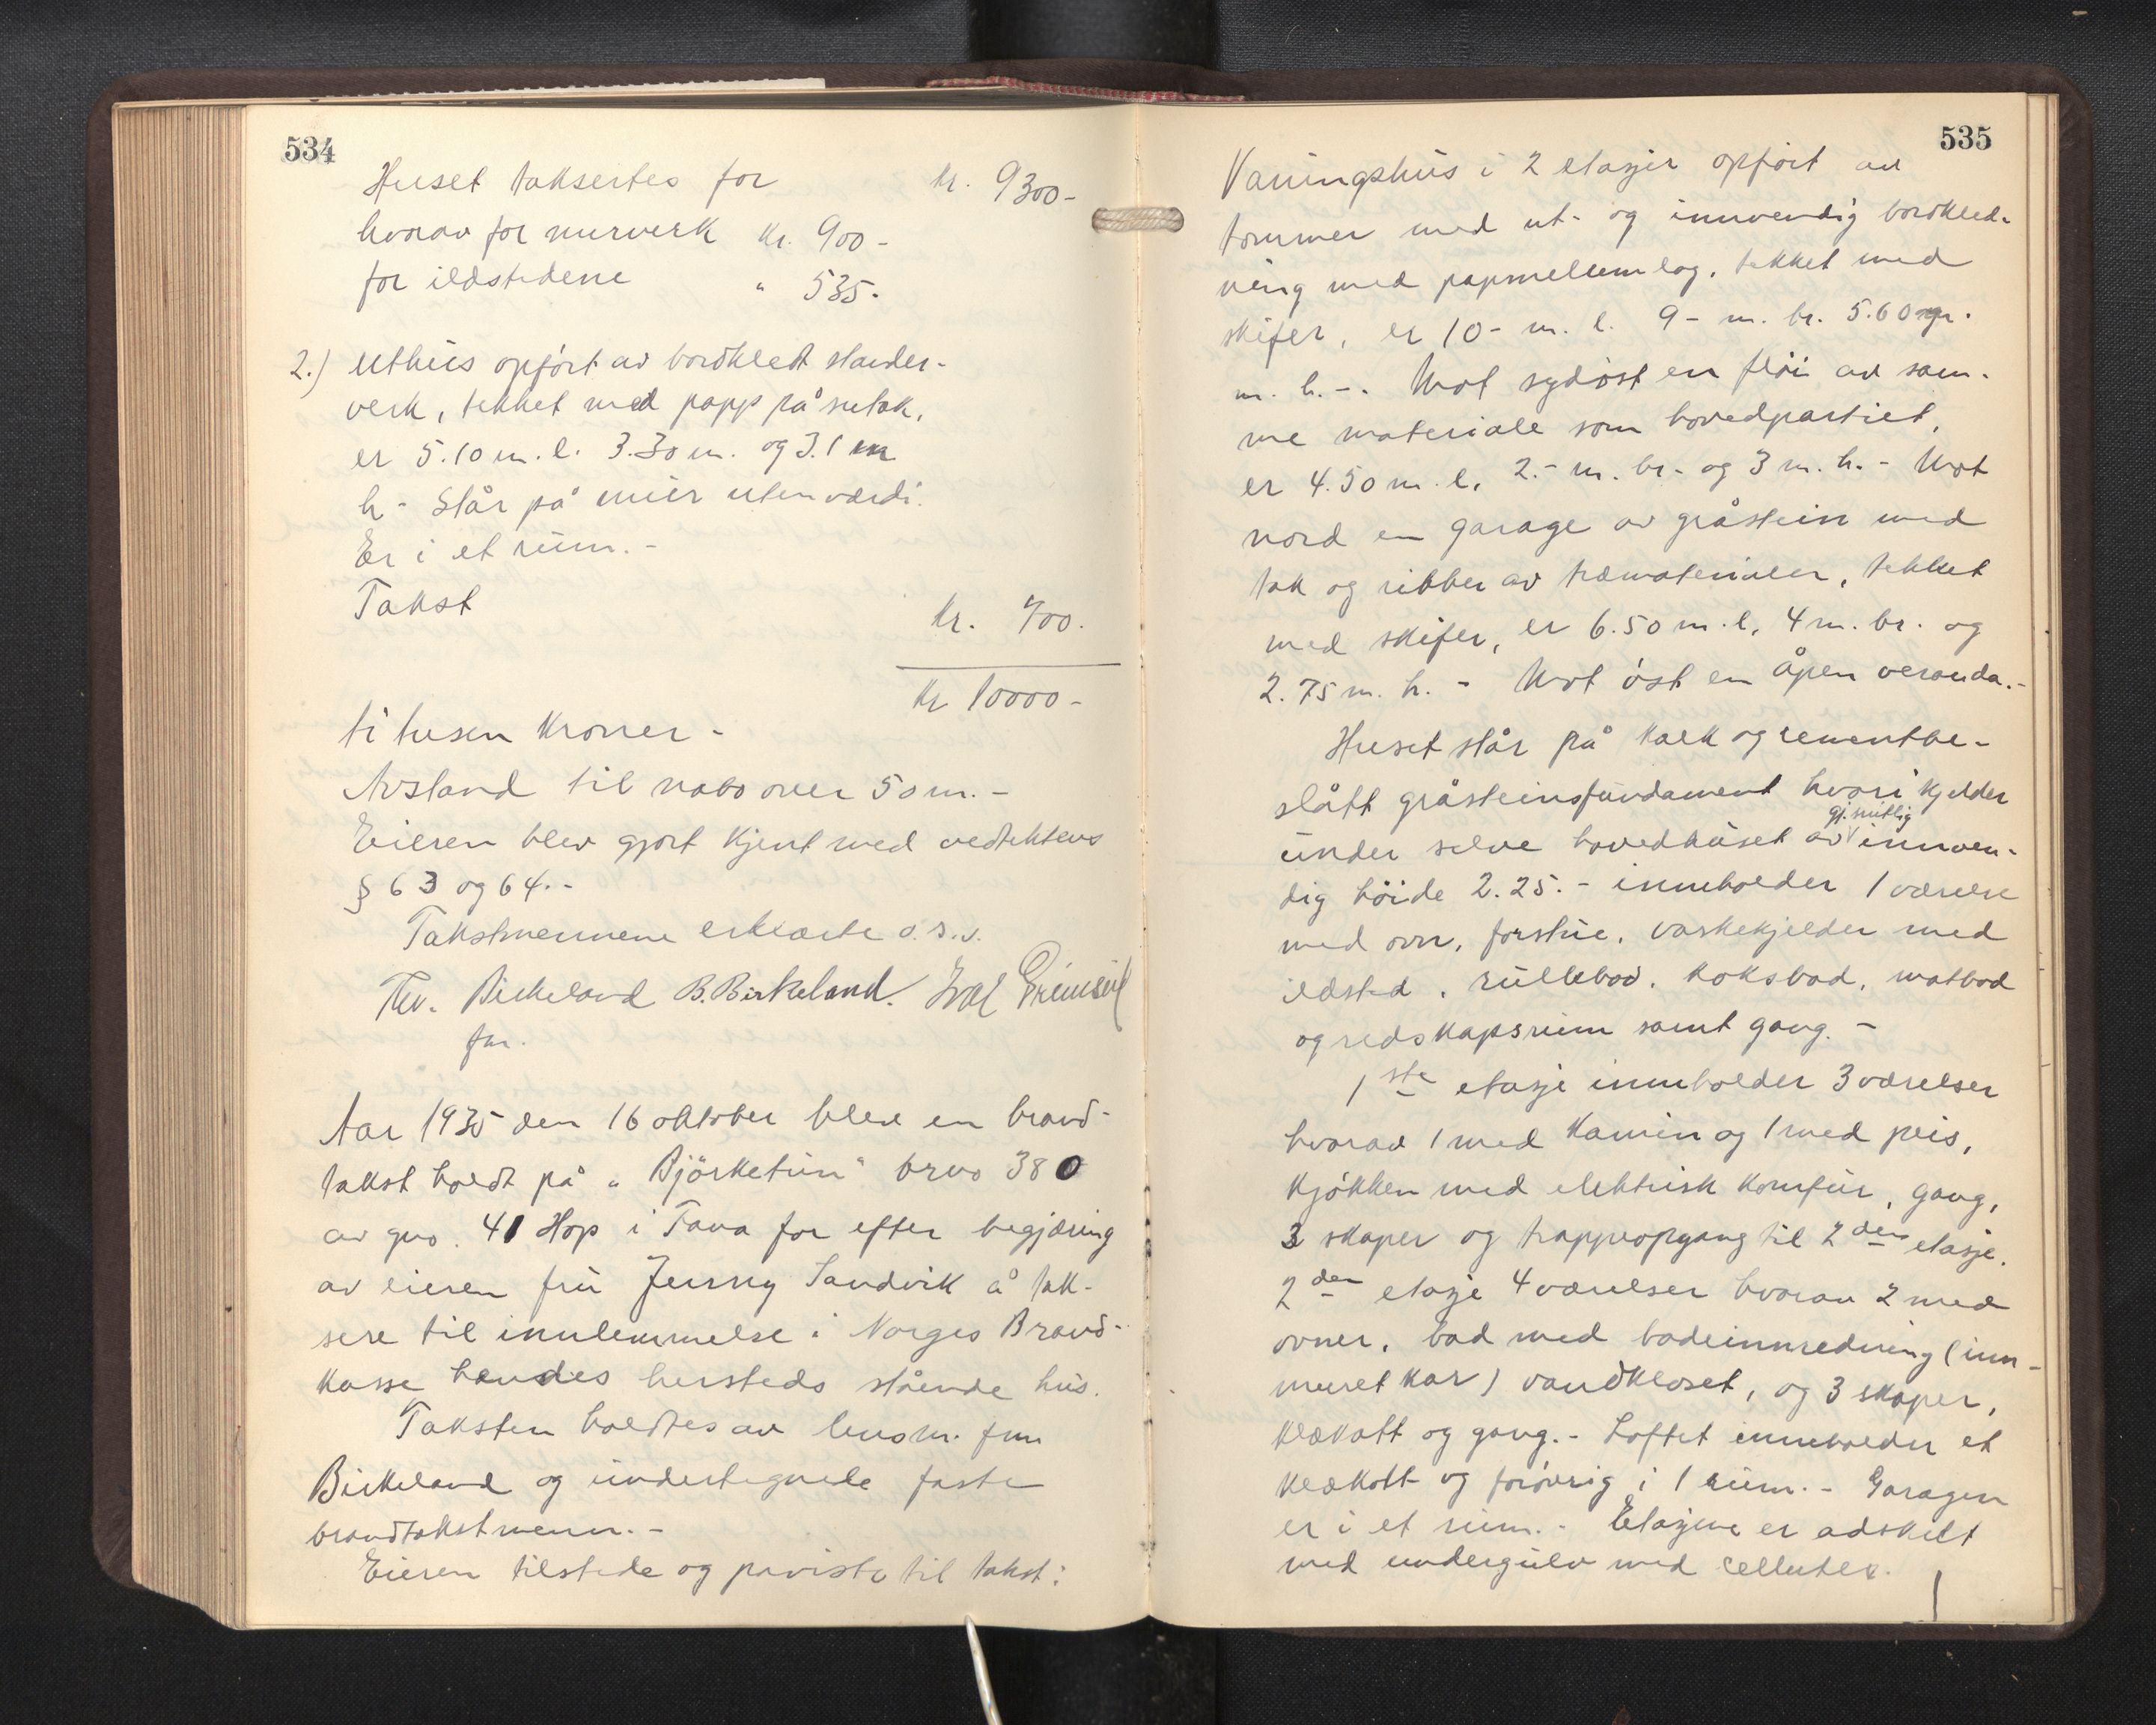 534
Huset taksertes for kr. 9300-
hvorav for murverk kr. 900-
for ildstedene " 535.
2.) Uthus opført av bordkledt stander-
verk, tekket med papp på sutak,
er 5.10 m. l. 3.30 m. og 3.1 m
h - Står på mur uten værdi.
Er i et rum.-
Takst kr. 700.
kr 10000-
ti tusen kroner -
Avstand til nabo over 50 m.-
Eieren blev gjort kjent med vedtektens
§ 63 og 64.-
Takstmennene erklærte o.s.v.
Birkeland B. Birkeland.
fm.
Aar 1935 den 16 oktober blev en brand-
takst holdt på "Björketun" brno 380
av gno. 41 Hop i Fana for efter begjæring
av eieren fru Jenny Sandvik å tak-
sere til innlemmelse i Norges Brand-
kasse hendes hersteds stående hus.
Taksten holdtes av lensm. fm
Birkeland og undertegnede faste
brandtakstmenn.-
Eieren tilstede og paviste til takst:
535
Vaningshus i 2 etasjer opført av
tømmer med ut- og innvendig bordkled-
ning med papmellemlag, tekket med
skifer, er 10- m. l. 9- m. br. 5.60
m. h.-. Mot sydøst en fløi av sam-
me materiale som hovedpartiet,
er 4.50 m. l. 2.- m. br- og 3 m. h. - Mot
nord en garage av gråstein med
tak og ribber av træmaterialer, tekket
med skifer, er 6.50 m. l, 4 m. br. og
2.75 m. h. - Mot øst en åpen veranda.-
Huset står på kalk og sementbe-
slått gråsteinsfundament hvori kjelder
under selve hovedhuset av gj. snitlig innven-
dig höide 2.25.- inneholder 1 værelse
med ovn, forstue, vaskekjelder med
ildsted, rullebod, koksbod, matbod
og redskapsrum samt gang. -
1ste etasje inneholder 3 værelser
hvorav 1 med kamin og 1 med peis,
kjøkken med elektrisk komfur, gang,
3 skaper og trappeopgang til 2den etasje.
2den etasje 4 værelser hvorav 2 med
ovner, bad med badeinnredning (inn-
muret kar) vandkloset, og 3 skaper,
klækott og gang.- Loftet inneholder et
klækott og forøvrig i 1 rum.- Garagen
er i et rum.- Etasjene er adskilt
med undergulv med